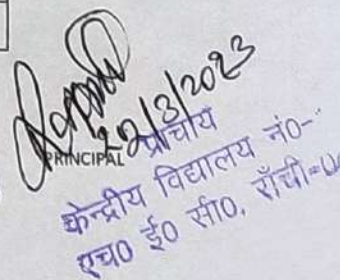 22/3/2023
PRINCIPAL
प्राचार्य
केन्द्रीय विद्यालय नं०-
एच० ई० सी०, राँची-